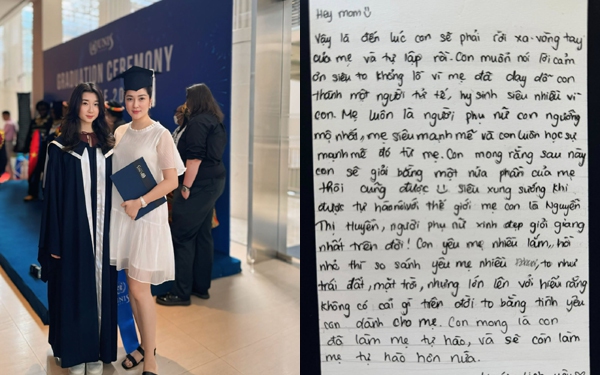 UNIS
GRADUATION CEREMONY
Hey mom
Vậy là đến lúc con sẽ phải rời xa vòng tay
của mẹ và tự lập rồi. Con muốn nói lời cảm
ơn siêu to khổng lồ vì mẹ đã dạy dỗ con
thành một người tử tế, hy sinh siêu nhiều vì
con. Mẹ luôn là người phụ nữ con ngưỡng
mộ nhất, mẹ siêu mạnh mẽ và con luôn học sự
mạnh mẽ đó từ mẹ. Con mong rằng sau này
con sẽ giỏi bằng một nửa phần của mẹ
thôi cũng được siêu sung sướng khi
được tự hào nói với thế giới mẹ con là Nguyễn
Thị Huyền, người phụ nữ xinh đẹp giỏi giang
nhất trên đời! Con yêu mẹ nhiều lắm, hồi
nhỏ thì so sánh yêu mẹ nhiều to như
trái đất, mặt trời, nhưng lớn lên với hiểu rằng
không có cái gì trên đời to bằng tình yêu
con dành cho mẹ. Con mong là con
đã làm mẹ tự hào, và sẽ còn làm
mẹ tự hào hơn nữa.